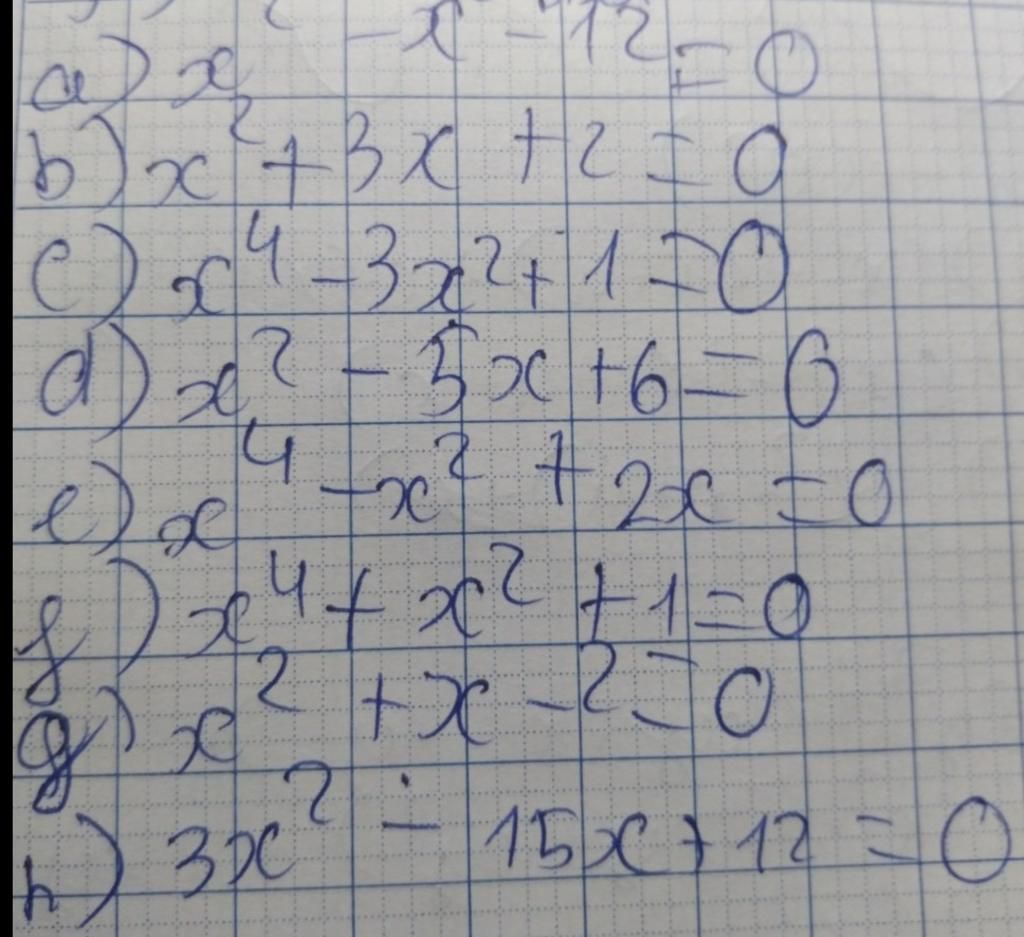 a) x² - x - 12 = 0
b) x² + 3x + 2 = 0
c) x⁴ - 3x² + 1 = 0
d) x² - 5x + 6 = 0
e) x⁴ - x² + 2x = 0
f) x⁴ + x² + 1 = 0
g) x² + x - 2 = 0
h) 3x² - 15x + 12 = 0